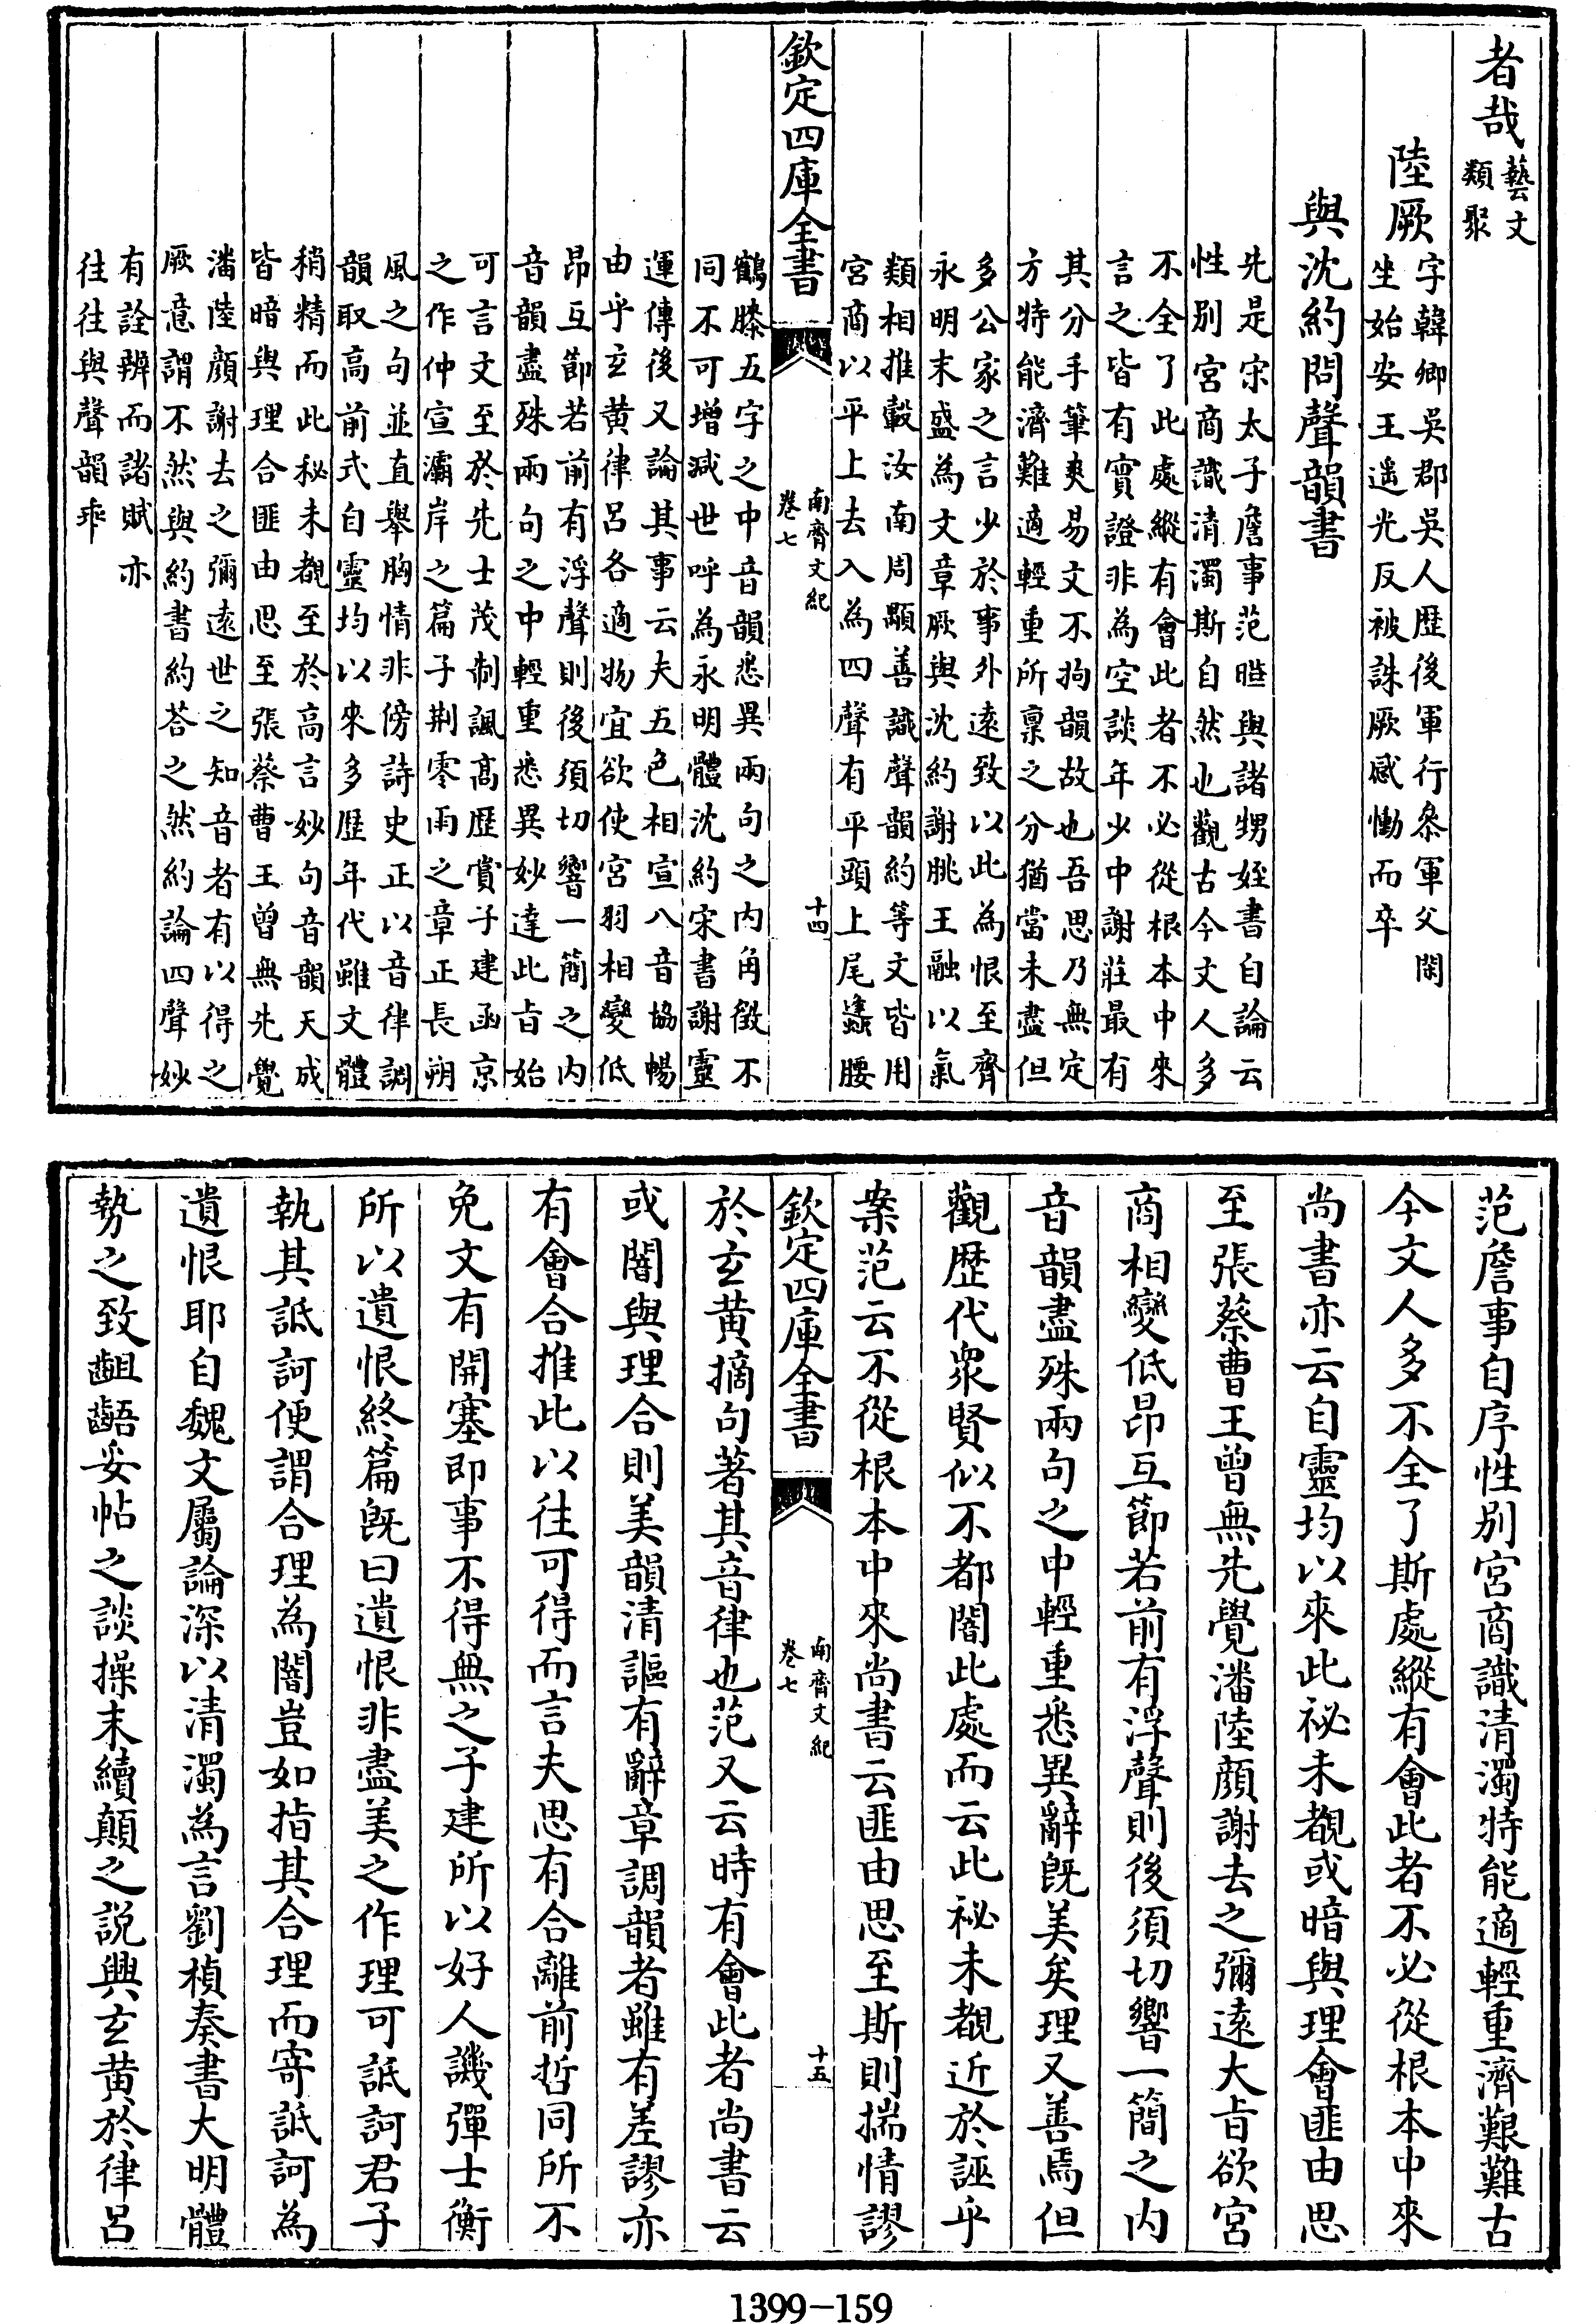 者哉藝文
類聚
陸厥字韓卿吳郡吳人歴後軍行叅軍父閑
生始安王遥光反被誅厥感慟而卒
與沈約問聲韻書
先是宋太子詹事范曄與諸甥姪書自論云
性别宫商識清濁斯自然也觀古今文人多
不全了此處縱有會此者不必從根本中來
言之皆有實證非為空談年少中謝莊最有
其分手筆爽易文不拘韻故也吾思乃無定
方特能濟難適輕重所禀之分猶當未盡但
多公家之言少於事外逺致以此為恨至齊
永明末盛為文章厥與沈約謝朓王融以氣
類相推轂汝南周顒善識聲韻約等文皆用
宫商以平上去入為四聲有平頭上尾蠭腰
欽定四庫全書
南齊文紀
卷七
十四
鶴膝五字之中音韻悉異兩句之内角徴不
同不可增減世呼為永明體沈約宋書謝靈
運傳後又論其事云夫五色相宣八音協暢
由乎玄黄律吕各適物宜欲使宫羽相變低
昂互節若前有浮聲則後須切響一簡之内
音韻盡殊兩句之中輕重悉異妙達此㫖始
可言文至於先士茂制諷髙歴賞子建函京
之作仲宣灞岸之篇子荆零雨之章正長朔
風之句並直舉胸情非傍詩史正以音律調
韻取高前式自靈均以來多歴年代雖文體
稍精而此秘未覩至於高言妙句音韻天成
皆暗與理合匪由思至張蔡曹王曾無先覺
潘陸顔謝去之彌逺世之知音者有以得之
厥意謂不然與約書約荅之然約論四聲妙
有詮辨而諸賦亦
往往與聲韻乖
范詹事自序性别宫商識清濁特能適輕重濟艱難古
今文人多不全了斯處縱有會此者不必從根本中來
尚書亦云自靈均以來此祕未覩或暗與理會匪由思
至張蔡曹王曾無先覺潘陸顔謝去之彌逺大㫖欲宫
商相變低昂互節若前有浮聲則後須切響一簡之内
音韻盡殊兩句之中輕重悉異辭既美矣理又善焉但
觀歴代衆賢似不都闇此處而云此祕未覩近於誣乎
案范云不從根本中來尚書云匪由思至斯則揣情謬
欽定四庫全書
南齊文紀
卷七
十五
於玄黄摘句著其音律也范又云時有會此者尚書云
或闇與理合則美韻清謳有辭章調韻者雖有差謬亦
有會合推此以往可得而言夫思有合離前哲同所不
免文有開塞即事不得無之子建所以好人譏彈士衡
所以遺恨終篇既曰遺恨非盡美之作理可詆訶君子
執其詆訶便謂合理為闇豈如指其合理而寄詆訶為
遺恨耶自魏文屬論深以清濁為言劉楨奏書大明體
勢之致齟齬妥帖之談操末續顛之説興玄黄於律吕
1399-159